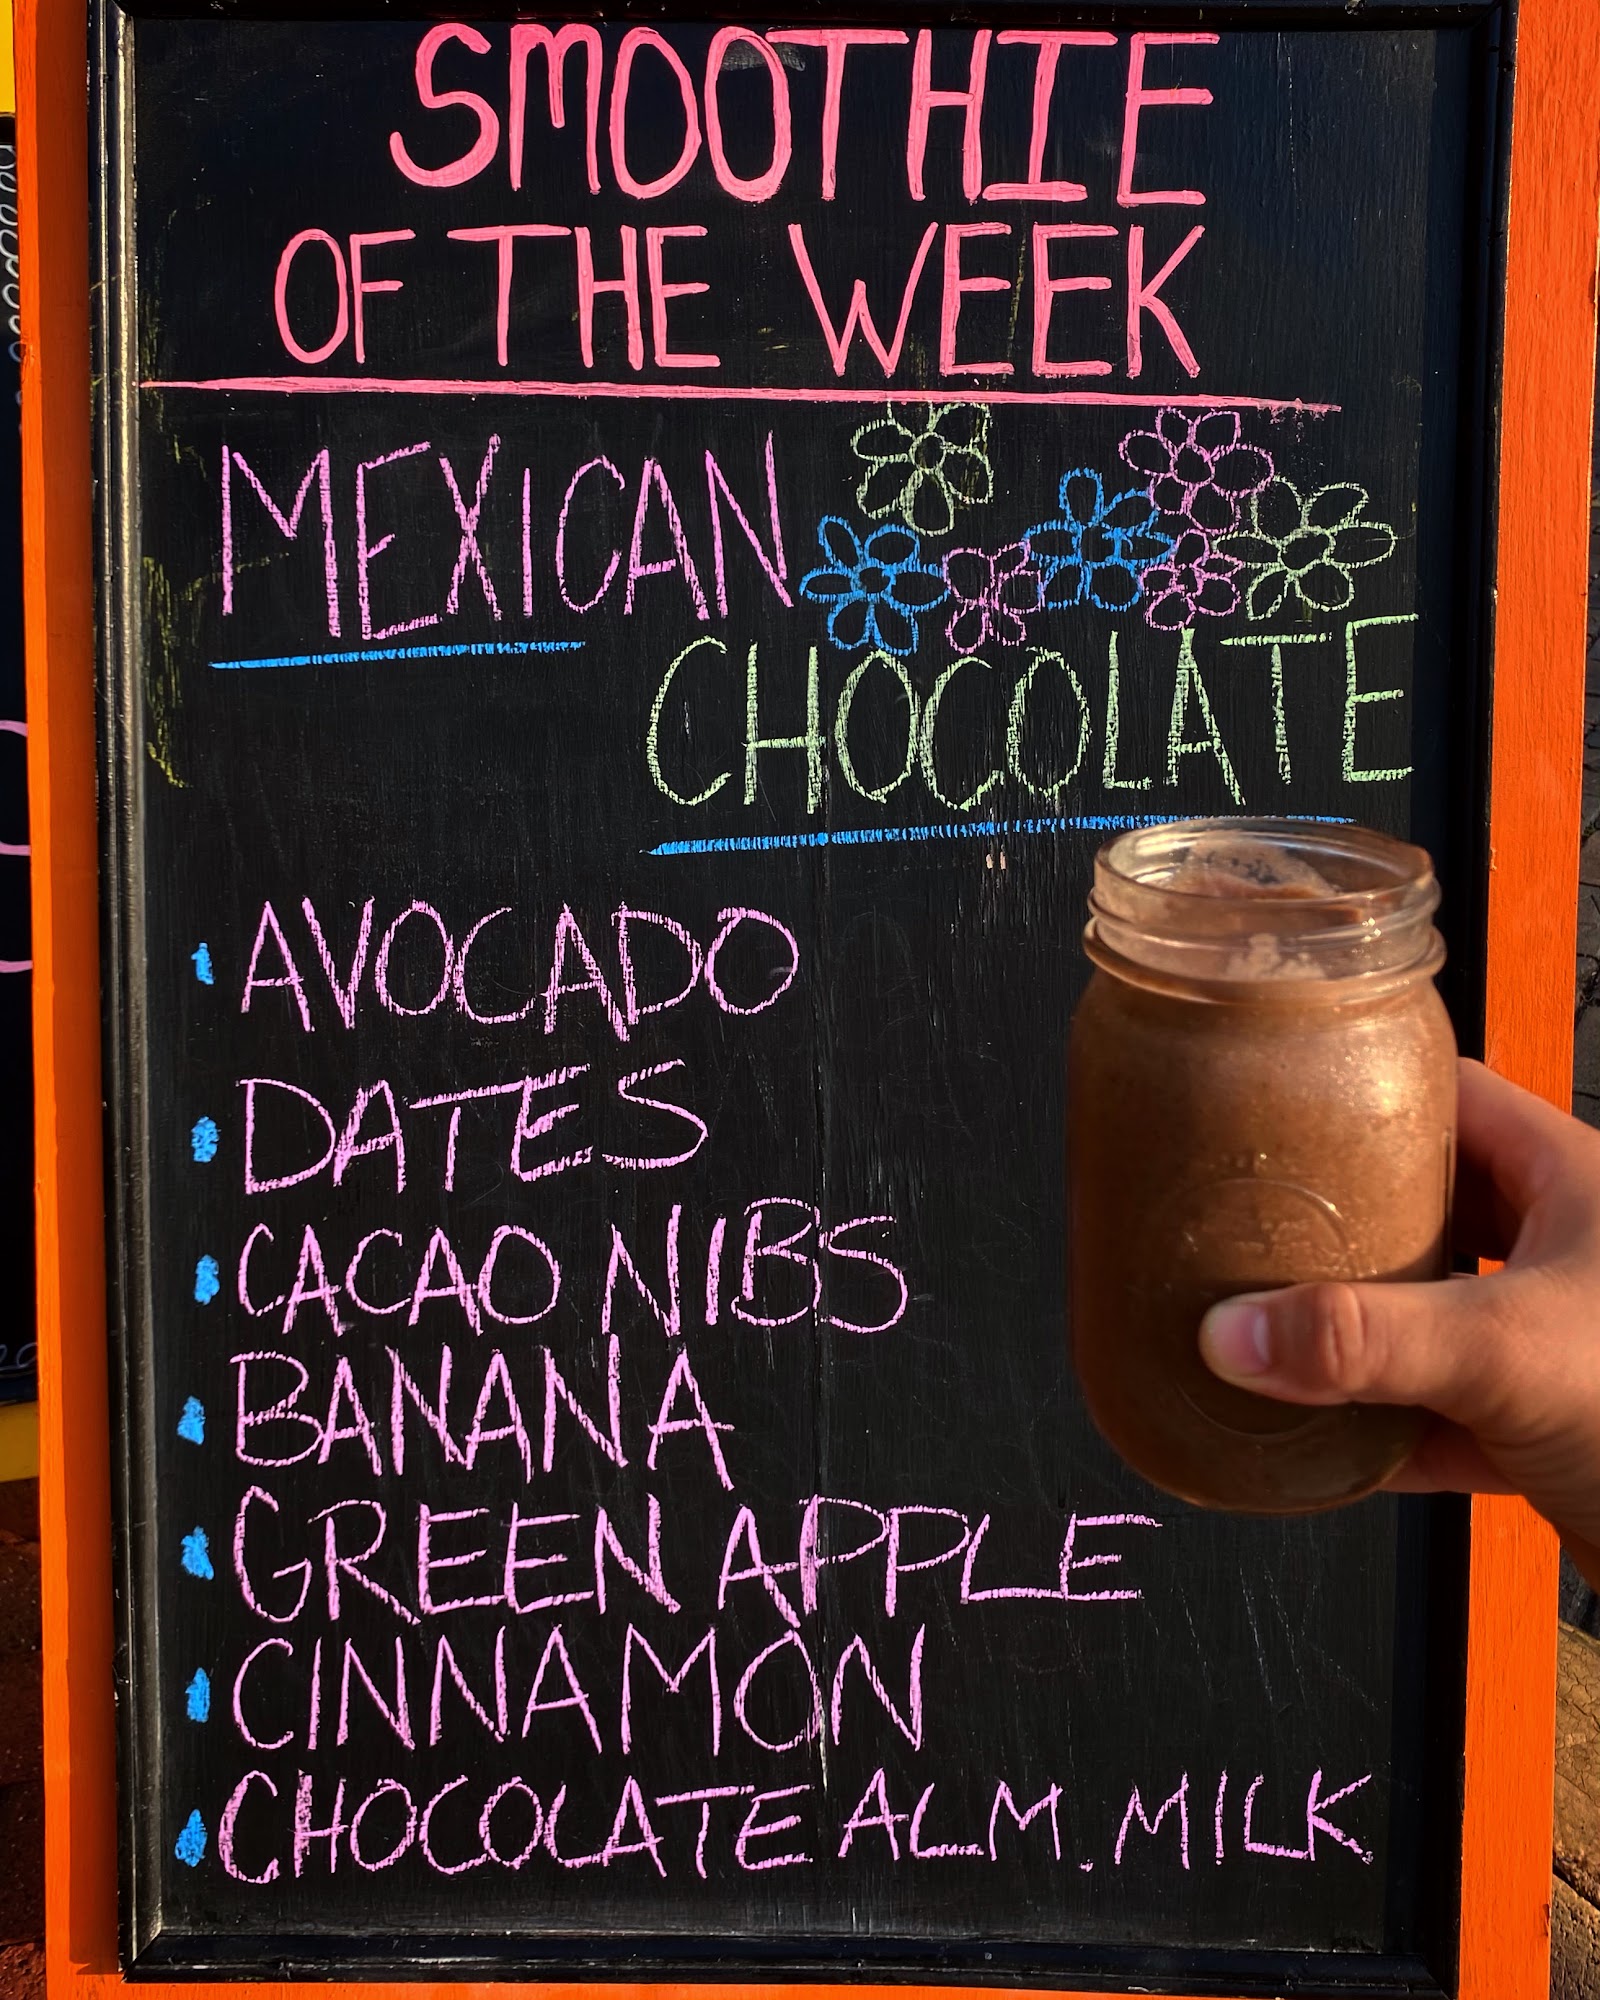 SMOOTHIE
OF THE WEEK
MEXICAN
CHOCOLATE
AVOCADO
DATES
CACAO NIBS
BANANA
GREEN APPLE
CINNAMON
CHOCOLATE ALM. MILK